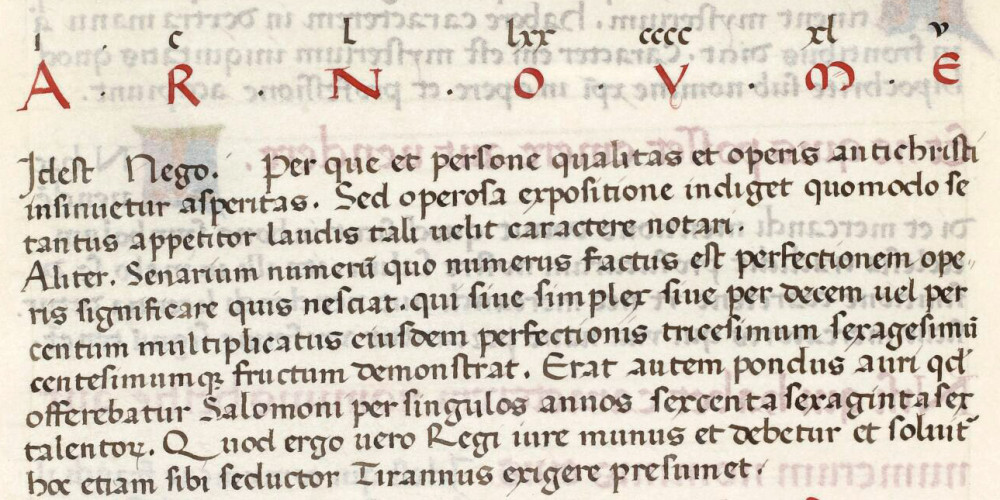 i . c l lxx cccc xl v
A R . N . O . V . M . E
Idest Nego. Per que et persone qualitas et operis antichristi
insinuetur asperitas. Sed operosa expositione indiget quomodo se
tantus appetitor laudis tali uelit caractere notari.
Aliter. Senarium numerū quo numerus factus est perfectionem ope-
ris significare quis nesciat. qui siue simplex siue per decem uel per
centum multiplicatus eiusdem perfectionis tricesimum sexagesimū
centesimumqꝫ fructum demonstrat. Erat autem pondus auri qd̄
offerebatur Salomoni per singulos annos sexcenta sexaginta sex
talentoꝝ. Quod ergo uero Regi iure munus et debetur et soluit᷑
hoc etiam sibi seductor Tirannus exigere presumet.